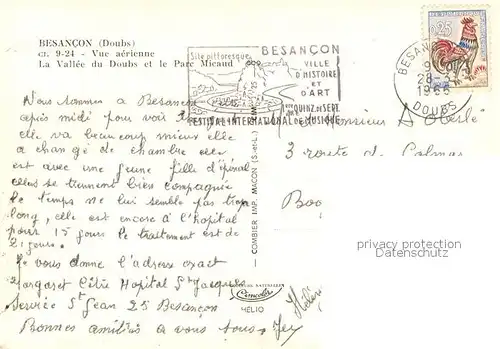 BESANÇON (Doubs)
CI. 9-24 - Vue aérienne
La Vallée du Doubs et le Parc Micaud
Site pittoresque
BESANÇON
VILLE
D'HISTOIRE
ET
D'ART
QUINZ. DE SEPT.
FESTIVAL INTERNATIONAL DE MUSIQUE
BESANÇON
28-
DOUBS
0,25
Nous sommes a Besançon
apris midi pour voir
elle va beaucoup mieux elle
a changé de chambre elle
est avec une jeune fille d'épinal
elles se tiennent bien compagnie
le temps ne lui semble pas trop
long, elle est encore a l'hopital
pour 15 jours le traitement est de
21 jours.
Je vous donne l'adresse exact
Margaret Hopital St Jacques
Service St Jean 25 Besançon
Bonnes amitiés a vous tous
COMBIER IMP. MACON (S.-et-L.)
COULEURS NATURELLES
Cimcolor
HÉLIO
Monsieur A
3 route de Colmar
privacy protection
Datenschutz